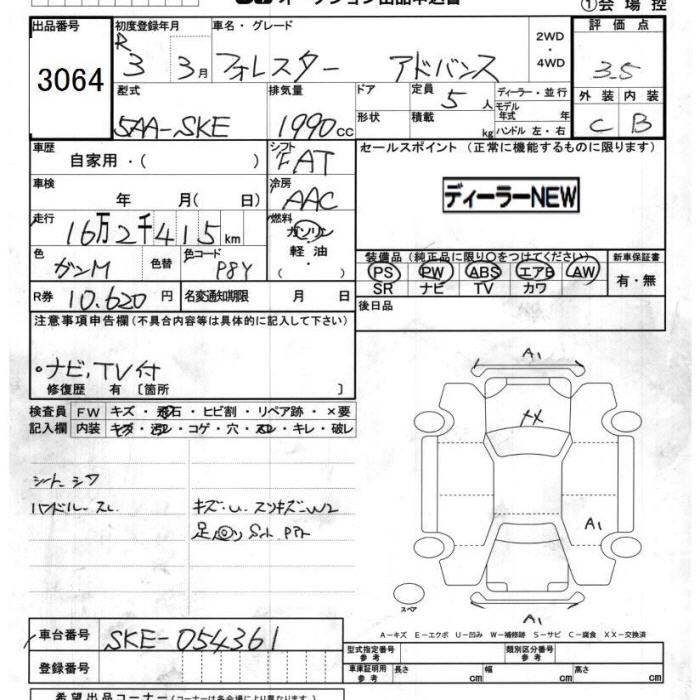 ①会場控
出品番号 3064
初度登録年月 R3 3月
車名・グレード フォレスター アドバンス
2WD・4WD
評価点 3.5
外装 C 内装 B
型式 5AA-SKE
排気量 1990cc
ドア形状
定員 5人
積載 kg
ディーラー・並行
モデル年式 年
ハンドル 左・右
車歴 自家用・( )
シフト FAT
セールスポイント(正常に機能するものに限ります)
ディーラーNEW
車検 年 月( 日)
冷房 AAC
走行 16万2千415km
燃料 ガソリン 軽油 ・( )
色 ガンM 色替
色コード P8Y
装備品(純正品に限り○をつけてください) 新車保証書
PS PW ABS エアB AW 有・無
SR ナビ TV カワ
R券 10.620円 名変通知期限 月 日
後日品
注意事項申告欄(不具合内容等は具体的に記入して下さい)
・ナビ,TV付
修復歴 有 〔箇所 〕
検査員記入欄 FW キズ・飛石・ヒビ割・リペア跡・×要
内装 キズ・汚レ・コゲ・穴・スレ・キレ・破レ
シート シワ
ハンドル スレ
キズ・U・スリキズ・W2
A1
XX
A1
A1
スペア
A-キズ E-エクボ U-凹み W-補修跡 S-サビ C-腐食 XX-交換済
車台番号 SKE-054361
登録番号
型式指定番号 参考 類別区分番号 参考
車庫証明用 参考 長さ cm 幅 cm 高さ cm
希望出品コーナー(コーナーは各会場により異なります)